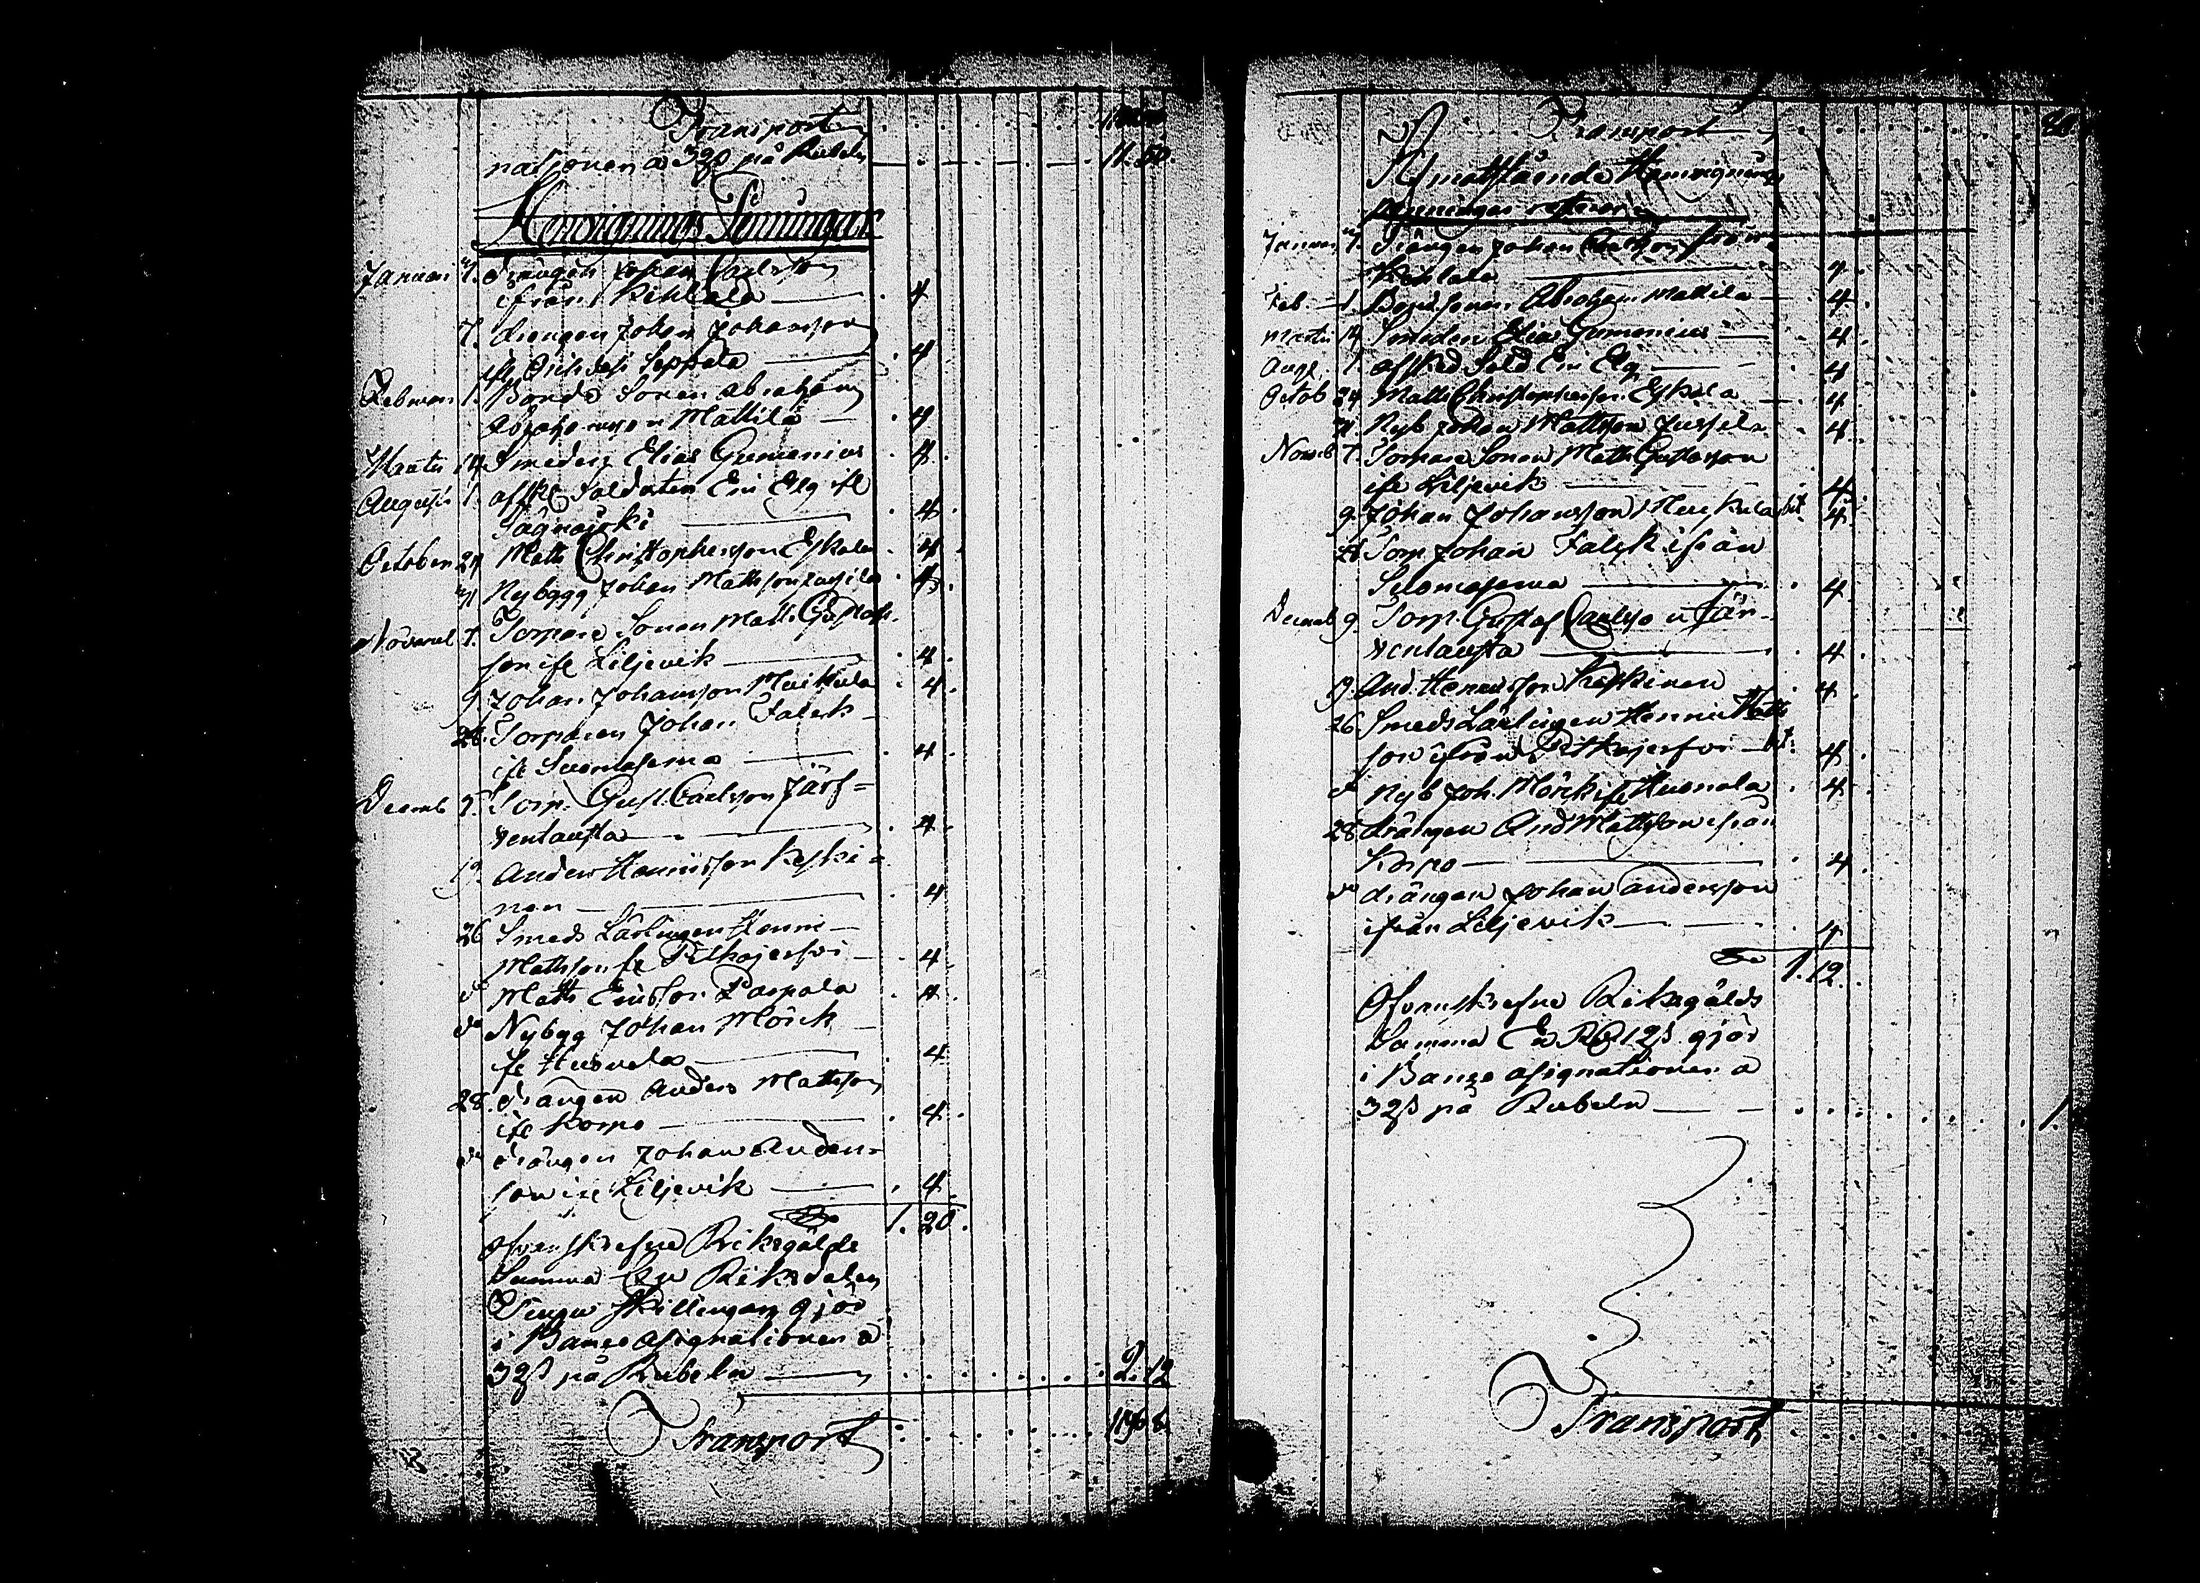 Transport
nationen a 32ß på Rubeln 11. 50.
Hemvignings Penningar
Januari 1. Drängen Johan Carlsson
ifrån Kihlala 4
7. drengen Johan Johansson
Seppela 4
Februari 1. Bonde Sonen Abraham
Abrahamsson Mattila 4
Martii 14 Smeden Elias Gumenius 4.
Augusti 1. afske Soldaten Eric Elg ifr
Sågnäski 4.
October 24 Matts Christophersson Eskola 4.
31 Nybygg Johan Mattsson Jussila 4.
Novemb 7. Torpare Sonen Matts Gustafs
son ifr Liljevik 4.
9. Johan Johansson Meikkula 4.
26. Torparen Johan Falck
ifr Suomasema 4.
Decemb 9. Torp. Gust. Carlsson Järf=
ventausta 4.
19. Anders Hennisson Keski=
nen 4
26 Smeds Lärlingen Henric
Mattsson fr Pitkäjerfvi 4.
do Matts Ericsson Paspala 4.
do Nybygg Johan Mörck
ifr Husnela 4
28. drängen Anders Mattsson
ifr Korpo 4.
do drängen Johan Anders-
son ifr Liljevik 4.
1. 20.
Ofvanskrefne Riksgälds
Summa En Riksdaler
Tiugu skillingar gjör
i Banco assignationer a
32ß på Rubeln 2. 12
Transport
Transport
Af motstående Hemvignings
penningar
Januari 1. Drängen Johan Carlsson från
Kihlala 4.
Feb. 1. Bondsonen Abraham Mattila 4.
Martii 14 Smeden Elias Gumenius 4.
Aug. 1. afsked Sold Eric Elg 4
Octob 24 Matts Christophersson Eskola 4
31 Nyb Johan Mattsson Jussila 4.
Novemb 7. Torpare Sonen Matts Gustafsson
ifr Liljevik 4.
9. Johan Johansson Meikkula bt. 4.
26 Torp Johan Falck ifrån
Suomasema 4.
Decemb 9. Torp. Gustaf Carlsso n Jär-
ventausta 4.
19. And. Hennisson Keskinen 4.
26. Smeds Lärlingen Henric Matts
son ifrån Pitkäjerfvi bt. 4.
do Nyb Joh. Mörck ifr Husnela 4.
28. drängen And Mattsson ifrån
Korpo 4.
do drängen Johan Andersson
ifrån Liljevik 4.
1. 12.
Ofvanskrefne Riksgälds
Summa En Rd 12ß gjör
i Banco assignationer a
32ß på Rubeln 1.
Transport